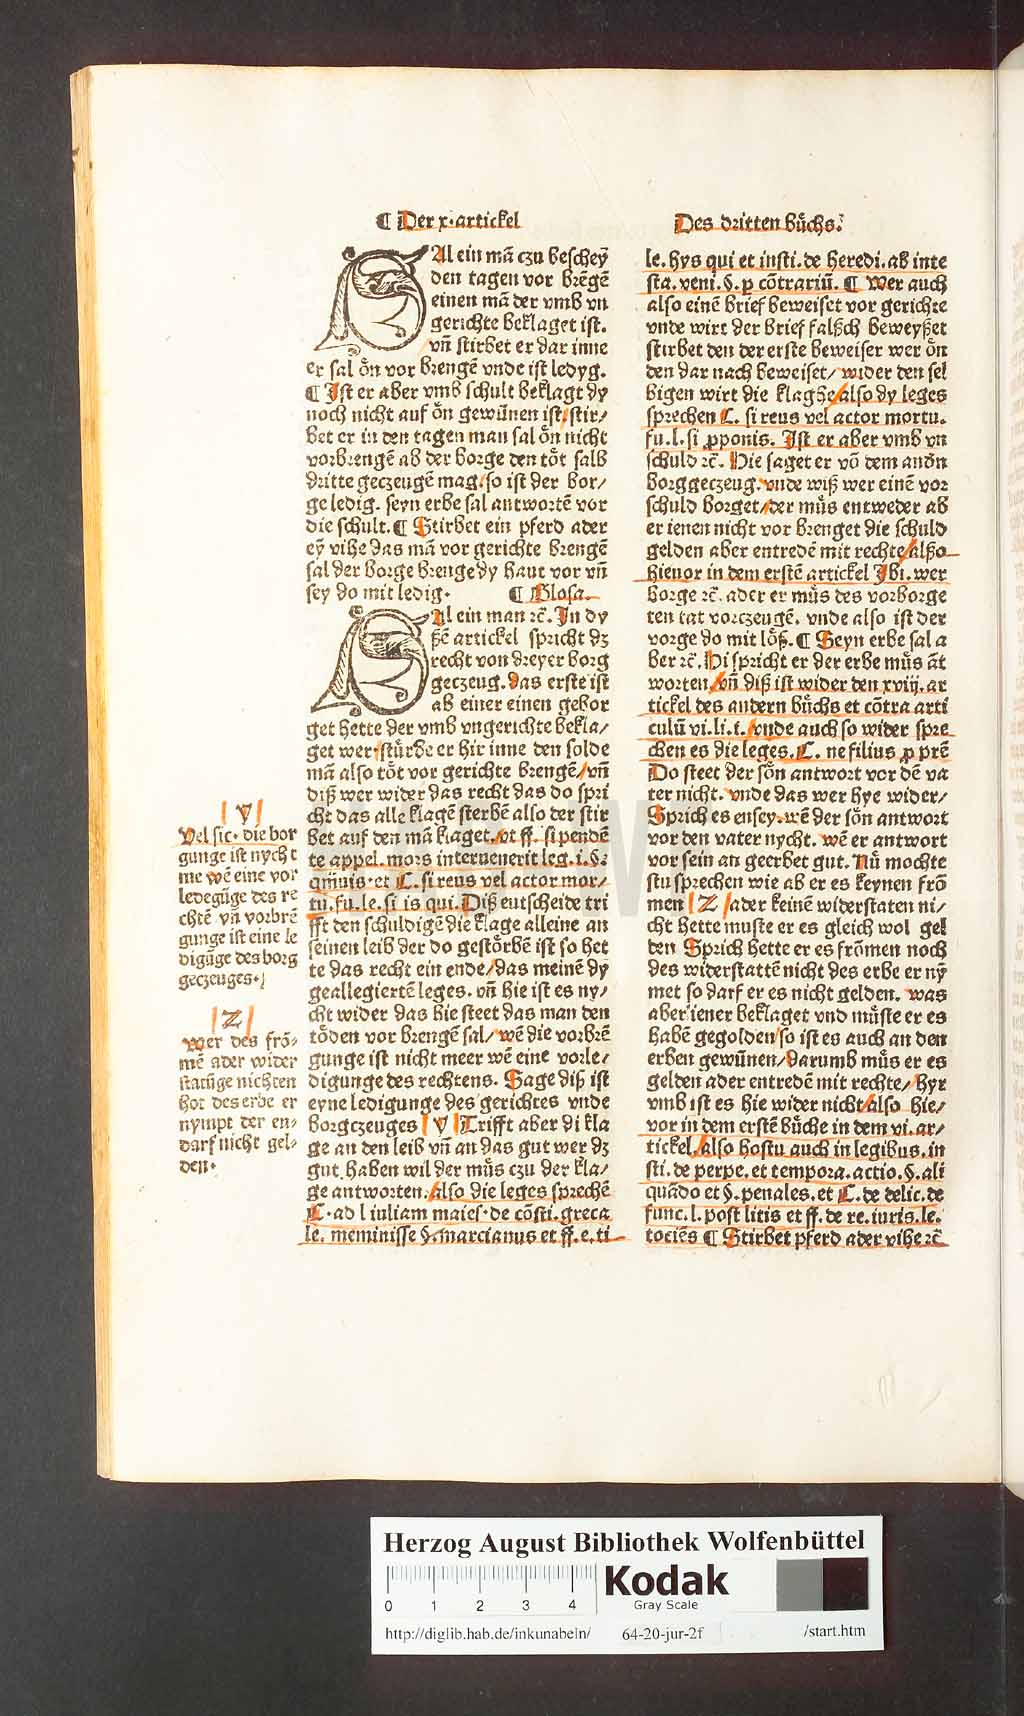 ¶ Der x. artickel
Des dritten bůchs.
SAl ein mā czu bescheÿ
den tagen vor brēgē
einen mā der vmb vn
gerichte beklaget ist.
vn̄ stirbet er dar inne
er sal ȯn vor brengē vnde ist ledyg.
¶ Jst er aber vmb schult beklagt dy
noch nicht auf ȯn gewūnen ist/stir/
bet er in den tagen man sal ȯn nicht
vorbrengē ab der borge den tȯt salb
dritte geczeugē mag/so ist der bor/
ge ledig. seyn erbe sal antwortē vor
die schult. ¶ Stirbet ein pferd ader
eÿ vihe das mā vor gerichte brengē
sal der borge brenge dy haut vor vn̄
sey do mit ledig. ¶ Glosa.
SAl ein man rc̄. Jn dy
ßē artickel spricht dz
recht von dreyer borg
geczeug. das erste ist
ab einer einen gebor
get hette der vmb vngerichte bekla/
get wer/stůrbe er hir inne den solde
mā also tȯt vor gerichte brengē/vn̄
diß wer wider das recht das do spri
cht das alle klagē sterbē also der stir
bet auf den mā klaget/vt ff. si pendē
te appel. mors interuenerit leg. i. §.
qm̄uis. et C. si reus vel actor mor/
tu. fu. le. si is qui. Diß entscheide tri
fft den schuldigē die klage alleine an
seinen leib der do gestȯrbē ist so het
te das recht ein ende/das meinē dy
geallegiertē leges. vn̄ hie ist es ny/
cht wider das hie steet das man den
tȯden vor brengē sal/wē die vorbrē
gunge ist nicht meer wē eine vorle/
digunge des rechtens. Sage diß ist
eyne ledigunge des gerichtes vnde
borgczeuges |V| Trifft aber di kla
ge an den leib vn̄ an das gut wer dz
gut haben wil der můs czu der kla/
ge antworten. also die leges sprechē
C. ad l iuliam maies. de cōsti. greca
le. meminisse §. marcianus et ff. e. ti
|V|
Vel sic. die bor
gunge ist nycht
me wē eine vor
ledegūge des re
chtē vn̄ vorbrē
gunge ist eine le
digūge des borg
geczeuges.
|Z|
Wer des frō-
mē ader wider
statūge nichten
hot des erbe er
nympt der en-
darf nicht gel-
den.
le. hys qui et insti. de heredi. ab inte
sta. veni. §. p cōtrariū. ¶ Wer auch
also einē brief beweiset vor gerichte
vnde wirt der brief falßch beweyßet
stirbet den der erste beweiser wer ȯn
den dar nach beweiset/wider den sel
bigen wirt die klaghe/also dy leges
sprechen C. si reus vel actor mortu.
fu. l. si ꝓponis. Jst er aber vmb vn
schuld rc̄. Hie saget er vō dem andn̄
borggeczeug. vnde wiß wer einē vor
schuld borget/der můs entweder ab
er ienen nicht vor brenget die schuld
gelden aber entredē mit rechte/alßo
hieuor in dem erstē artickel Jbi. wer
borge rc̄. ader er můs des vorborge
ten tat vorczeugē. vnde also ist der
vorge do mit lȯß. ¶ Seyn erbe sal a
ber rc̄. Hi spricht er der erbe můs āt
worten/vn̄ diß ist wider den xviij. ar
tickel des andern bůchs et cōtra arti
culū vi. li. i. vnde auch so wider spre
chen es die leges. C. ne filius ꝓ prē
Do steet der sȯn antwort vor dē va
ter nicht. vnde das wer hye wider/
Sprich es ensey. wē der sȯn antwort
vor den vater nycht. wē er antwort
vor sein an geerbet gut. Nů mochte
stu sprechen wie ab er es keynen frō
men |Z| ader keinē widerstaten ni/
cht hette muste er es gleich wol gel
den Sprich hette er es frōmen noch
des widerstattē nicht des erbe er nȳ
met so darf er es nicht gelden. was
aber iener beklaget vnd můste er es
habē gegolden/so ist es auch an den
erben gewūnen/darumb můs er es
gelden ader entredē mit rechte/hyr
vmb ist es hie wider nicht/also hie/
vor in dem erstē bůche in dem vi. ar/
tickel/also hostu auch in legibus. in
sti. de perpe. et tempora. actio. §. ali
quādo et §. penales. et C. de delic. de
func. l. post litis et ff. de re. iuris. le.
tociēs ¶ Stirbet pferd ader vihe rc̄
Herzog August Bibliothek Wolfenbüttel
0 1 2 3 4
Kodak
Gray Scale
http://diglib.hab.de/inkunabeln/ 64-20-jur-2f /start.htm